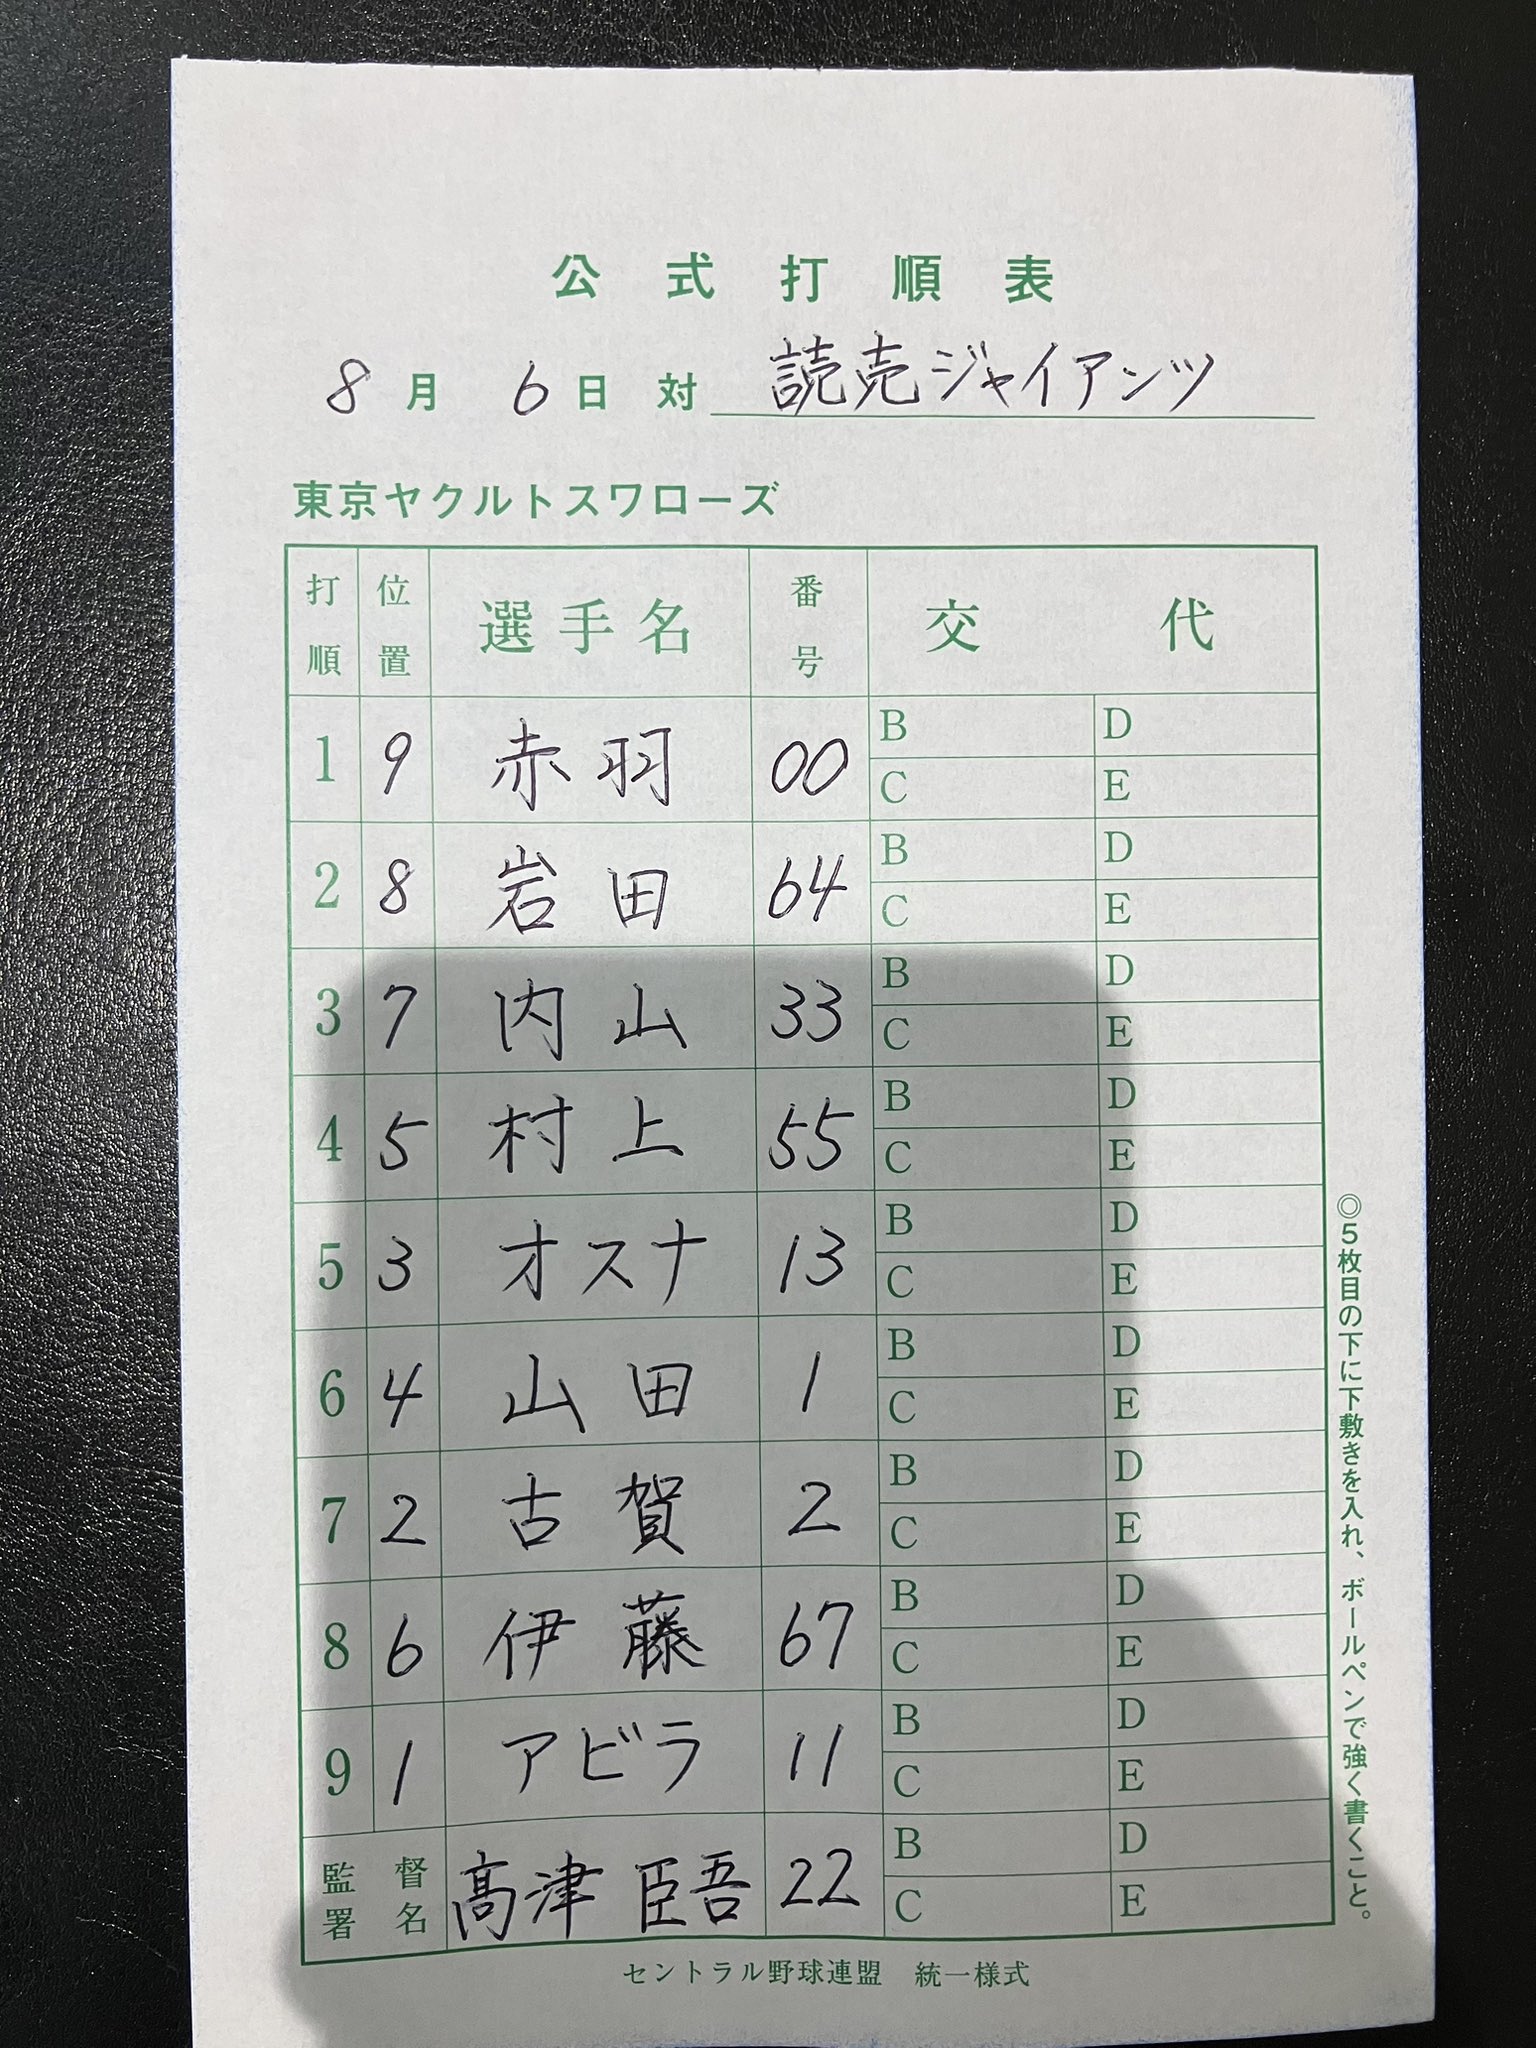 公式打順表
8月 6日 対 読売ジャイアンツ
東京ヤクルトスワローズ
打順 位置 選手名 番号 交代
1 9 赤羽 00 B D
C E
2 8 岩田 64 B D
C E
3 7 内山 33 B D
C E
4 5 村上 55 B D
C E
5 3 オスナ 13 B D
C E
6 4 山田 1 B D
C E
7 2 古賀 2 B D
C E
8 6 伊藤 67 B D
C E
9 1 アビラ 11 B D
C E
監督署名 髙津臣吾 22 B D
C E
◎5枚目の下に下敷きを入れ、ボールペンで強く書くこと。
セントラル野球連盟 統一様式